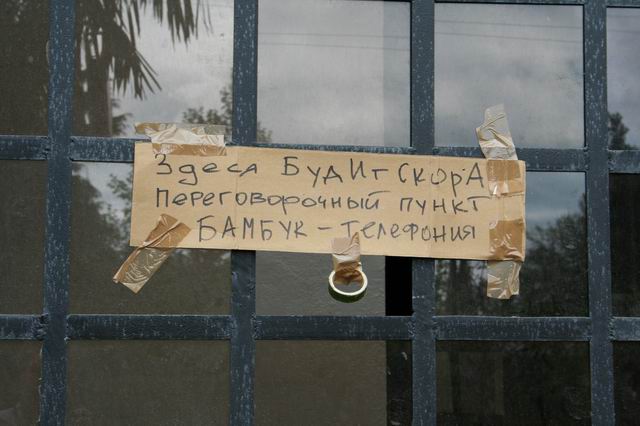 Здеся БудИт СкорА
Переговорочный пункт
БАМБУК - Телефония